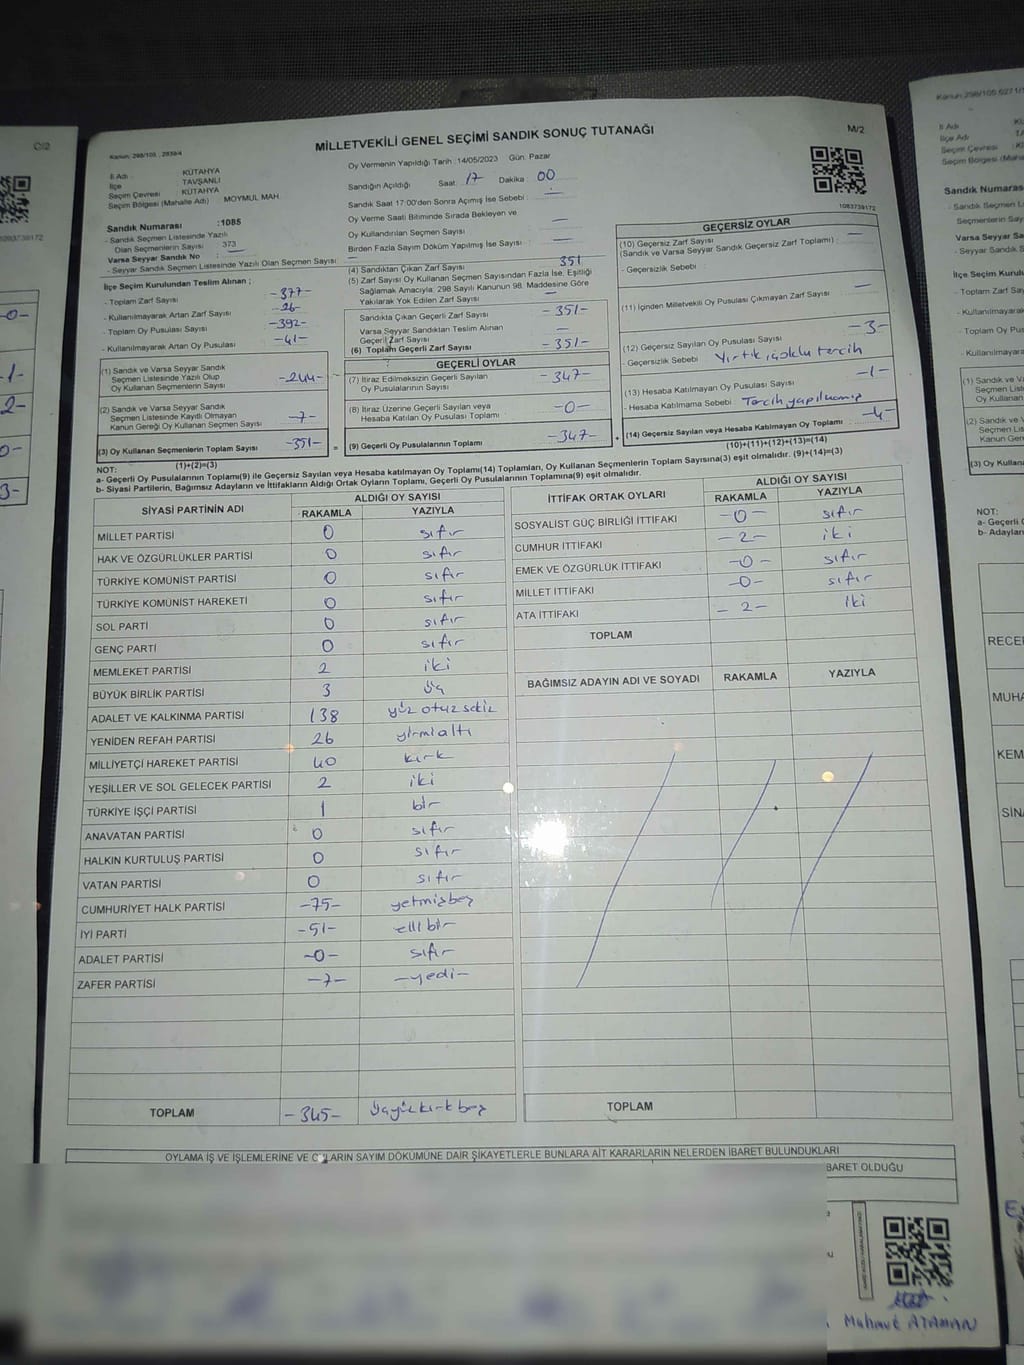 MİLLETVEKİLİ GENEL SEÇİMİ SANDIK SONUÇ TUTANAĞI
M/2
C/2
İl Adı : KÜTAHYA
İlçe : TAVŞANLI
Seçim Çevresi : KÜTAHYA
Seçim Bölgesi (Mahalle Adı) : MOYMUL MAH.
Oy Vermenin Yapıldığı Tarih :14/05/2023 Gün. Pazar
Sandığın Açıldığı Saat: 17 Dakika : 00
Sandık Saat 17:00'den Sonra Açımış İse Sebebi : —
Oy Verme Saati Bitiminde Sırada Bekleyen ve
Oy Kullandırılan Seçmen Sayısı : —
Birden Fazla Sayım Döküm Yapılmış İse Sayısı : —
1083739172
Sandık Numarası :1085
- Sandık Seçmen Listesinde Yazılı
Olan Seçmenlerin Sayısı 373
Varsa Seyyar Sandık No : —
- Seyyar Sandık Seçmen Listesinde Yazılı Olan Seçmen Sayısı —
İlçe Seçim Kurulundan Teslim Alınan ;
- Toplam Zarf Sayısı -377-
- Kullanılmayarak Artan Zarf Sayısı -26-
- Toplam Oy Pusulası Sayısı -392-
- Kullanılmayarak Artan Oy Pusulası -41-
(1) Sandık ve Varsa Seyyar Sandık
Seçmen Listesinde Yazılı Olup
Oy Kullanan Seçmenlerin Sayısı
(2) Sandık ve Varsa Seyyar Sandık
Seçmen Listesinde Kayıtlı Olmayan
Kanun Gereği Oy Kullanan Seçmen Sayısı -7-
(3) Oy Kullanan Seçmenlerin Toplam Sayısı -351-
(1)+(2)=(3)
(4) Sandıktan Çıkan Zarf Sayısı 351
(5) Zarf Sayısı Oy Kullanan Seçmen Sayısından Fazla İse, Eşitliği
Sağlamak Amacıyla; 298 Sayılı Kanunun 98. Maddesine Göre
Yakılarak Yok Edilen Zarf Sayısı —
Sandıkta Çıkan Geçerli Zarf Sayısı - 351-
Varsa Seyyar Sandıktan Teslim Alınan
Geçerli Zarf Sayısı —
(6) Toplam Geçerli Zarf Sayısı -351-
GEÇERLİ OYLAR
(7) İtiraz Edilmeksizin Geçerli Sayılan
Oy Pusulalarının Sayısı - 347-
(8) İtiraz Üzerine Geçerli Sayılan veya
Hesaba Katılan Oy Pusulası Toplamı -0-
= (9) Geçerli Oy Pusulalarının Toplamı -347-
GEÇERSİZ OYLAR
(10) Geçersiz Zarf Sayısı —
(Sandık ve Varsa Seyyar Sandık Geçersiz Zarf Toplamı) :
- Geçersizlik Sebebi :
(11) İçinden Milletvekili Oy Pusulası Çıkmayan Zarf Sayısı —
(12) Geçersiz Sayılan Oy Pusulası Sayısı -3-
- Geçersizlik Sebebi : Yırtık, çoklu tercih
(13) Hesaba Katılmayan Oy Pusulası Sayısı -1-
- Hesaba Katılmama Sebebi : Tercih yapılmamış
+ (14) Geçersiz Sayılan veya Hesaba Katılmayan Oy Toplamı -4-
(10)+(11)+(12)+(13)=(14)
NOT:
a- Geçerli Oy Pusulalarının Toplamı(9) ile Geçersiz Sayılan veya Hesaba katılmayan Oy Toplamı(14) Toplamları, Oy Kullanan Seçmenlerin Toplam Sayısına(3) eşit olmalıdır. (9)+(14)=(3)
b- Siyasi Partilerin, Bağımsız Adayların ve İttifakların Aldığı Ortak Oyların Toplamı, Geçerli Oy Pusulalarının Toplamına(9) eşit olmalıdır.
SİYASİ PARTİNİN ADI ALDIĞI OY SAYISI
RAKAMLA YAZIYLA
MİLLET PARTİSİ 0 sıfır
HAK VE ÖZGÜRLÜKLER PARTİSİ 0 sıfır
TÜRKİYE KOMÜNİST PARTİSİ 0 sıfır
TÜRKİYE KOMÜNİST HAREKETİ 0 sıfır
SOL PARTİ 0 sıfır
GENÇ PARTİ 0 sıfır
MEMLEKET PARTİSİ 2 iki
BÜYÜK BİRLİK PARTİSİ 3 üç
ADALET VE KALKINMA PARTİSİ 138 yüz otuz sekiz
YENİDEN REFAH PARTİSİ 26 yirmialtı
MİLLİYETÇİ HAREKET PARTİSİ 40 kırk
YEŞİLLER VE SOL GELECEK PARTİSİ 2 iki
TÜRKİYE İŞÇİ PARTİSİ 1 bir
ANAVATAN PARTİSİ 0 sıfır
HALKIN KURTULUŞ PARTİSİ 0 sıfır
VATAN PARTİSİ 0 sıfır
CUMHURİYET HALK PARTİSİ -75- yetmişbeş
İYİ PARTİ -51- elli bir
ADALET PARTİSİ -0- sıfır
ZAFER PARTİSİ -7- -yedi-
TOPLAM -345- üçyüzkırkbeş
İTTİFAK ORTAK OYLARI ALDIĞI OY SAYISI
RAKAMLA YAZIYLA
SOSYALİST GÜÇ BİRLİĞİ İTTİFAKI -0- sıfır
CUMHUR İTTİFAKI -2- iki
EMEK VE ÖZGÜRLÜK İTTİFAKI -0- sıfır
MİLLET İTTİFAKI -0- sıfır
ATA İTTİFAKI -2- iki
TOPLAM
BAĞIMSIZ ADAYIN ADI VE SOYADI RAKAMLA YAZIYLA
TOPLAM
OYLAMA İŞ VE İŞLEMLERİNE VE OYLARIN SAYIM DÖKÜMÜNE DAİR ŞİKAYETLERLE BUNLARA AİT KARARLARIN NELERDEN İBARET BULUNDUKLARI
BARET OLDUĞU
Mahmut ATAMAN